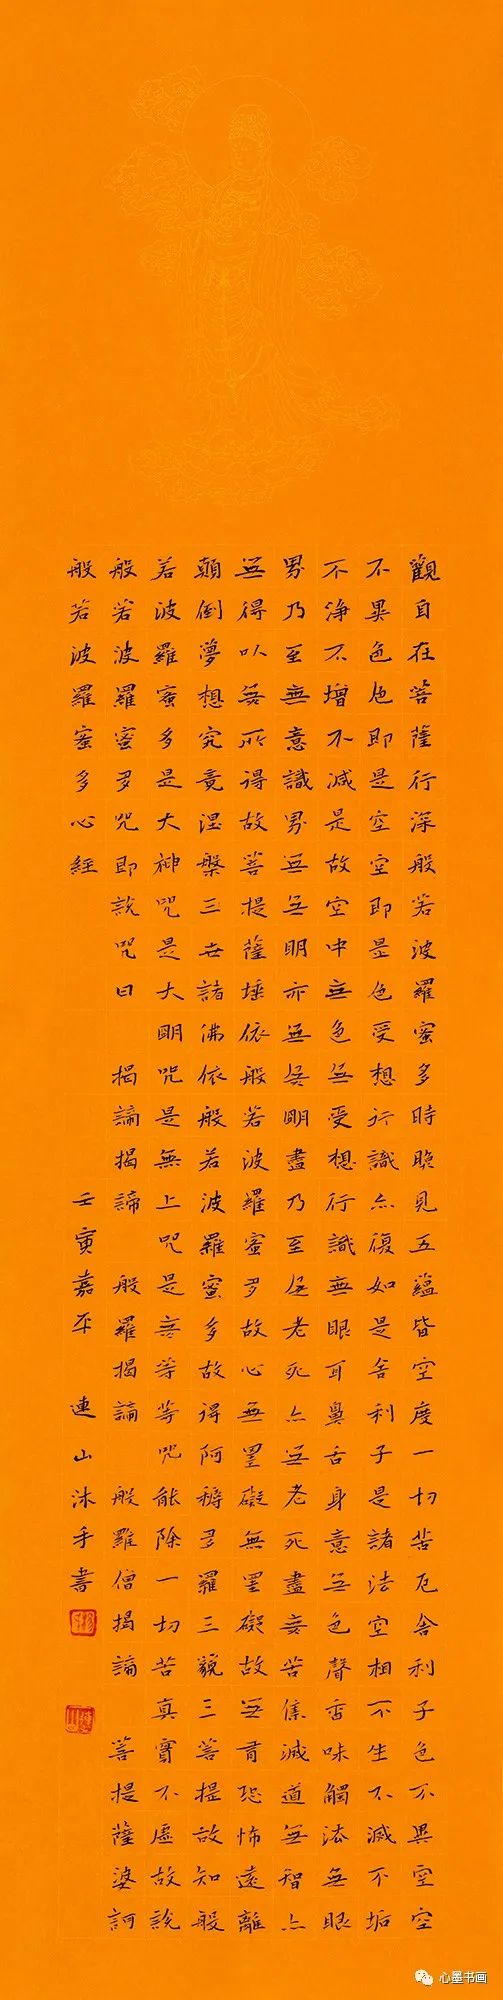 觀自在菩薩行深般若波羅蜜多時照見五蘊皆空度一切苦厄舍利子色不異空空
不異色色即是空空即是色受想行識亦復如是舍利子是諸法空相不生不滅不垢
不淨不增不減是故空中無色無受想行識無眼耳鼻舌身意無色聲香味觸法無眼
界乃至無意識界無無明亦無無明盡乃至無老死亦無老死盡無苦集滅道無智亦
無得以無所得故菩提薩埵依般若波羅蜜多故心無罣礙無罣礙故無有恐怖遠離
顛倒夢想究竟涅槃三世諸佛依般若波羅蜜多故得阿耨多羅三藐三菩提故知般
若波羅蜜多是大神咒是大明咒是無上咒是無等等咒能除一切苦真實不虛故說
般若波羅蜜多咒即說咒曰 揭諦揭諦 般羅揭諦 般羅僧揭諦 菩提薩婆訶
般若波羅蜜多心經 壬寅嘉平 連山沐手書
心墨书画